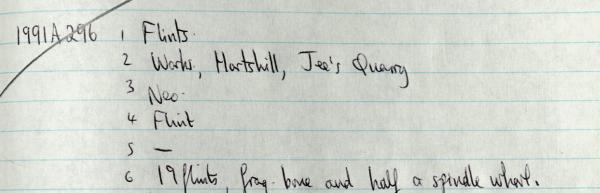 1991A296 1 Flints.
2 Warks, Hartshill, Jee's Quarry
3 Neo.
4 Flint
5 —
6 19 flints, frag. bone and half a spindle whorl.